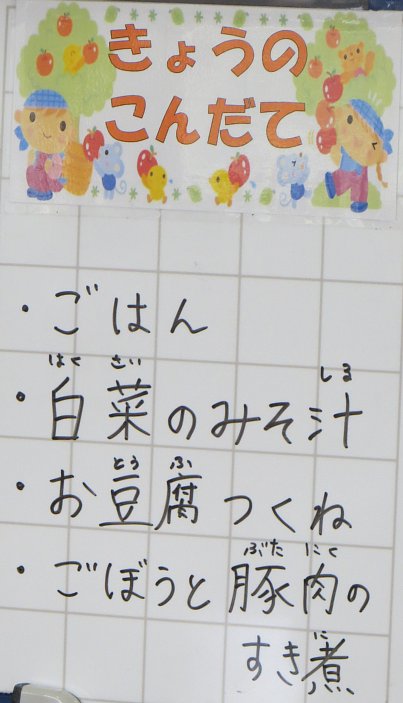 きょうの
こんだて
・ごはん
・白菜のみそ汁
・お豆腐つくね
・ごぼうと豚肉の
すき煮